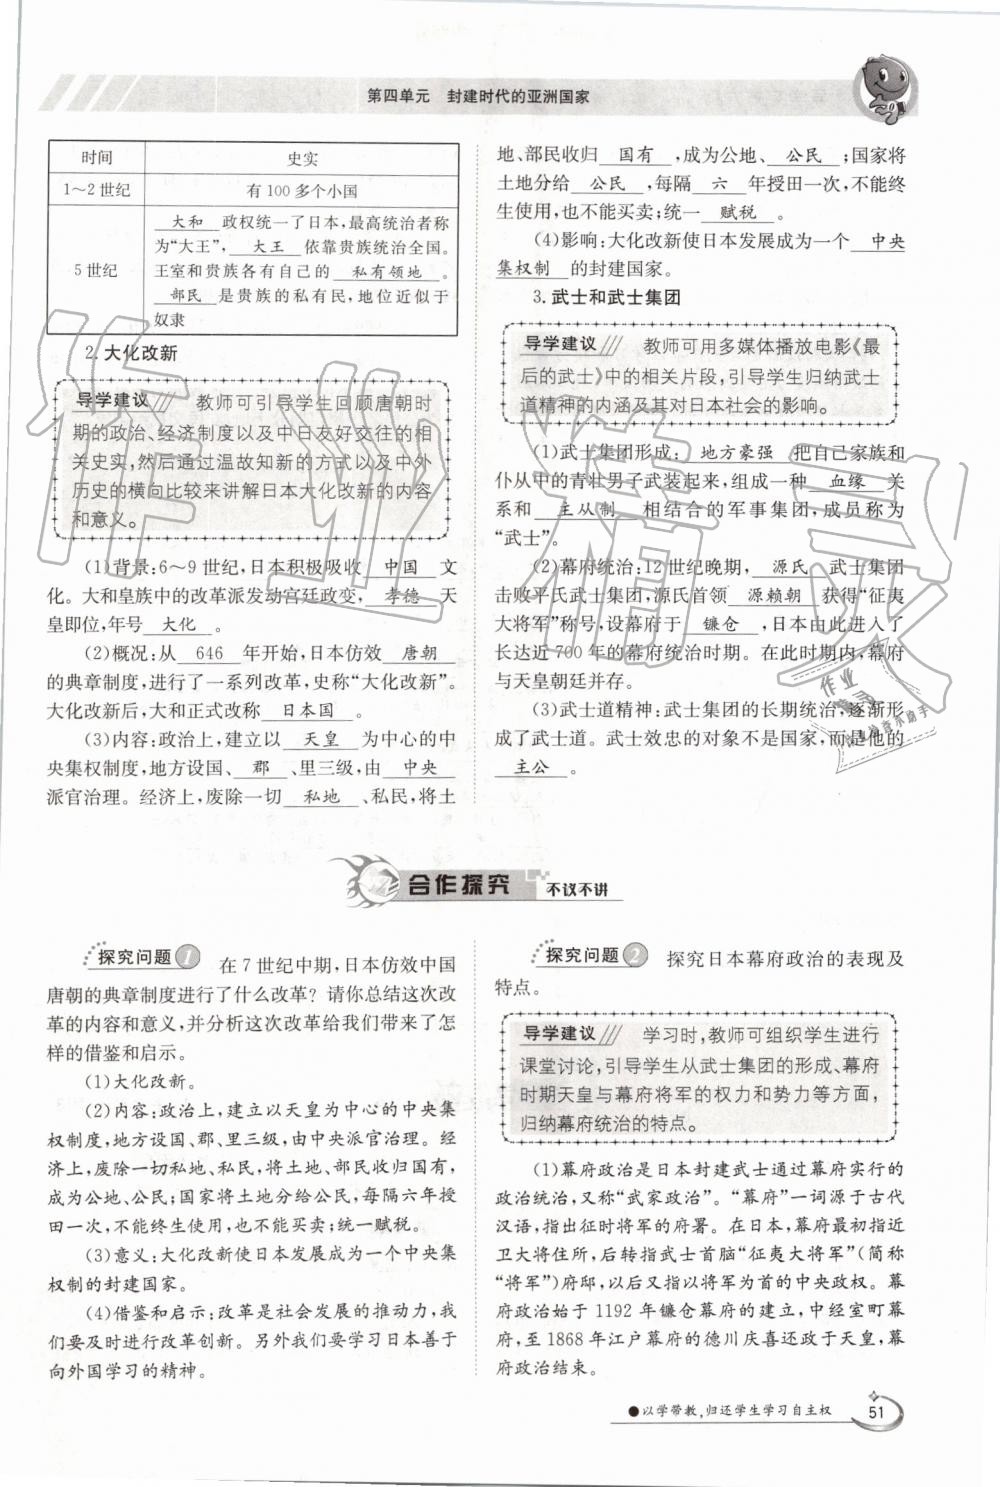 第四单元　封建时代的亚洲国家
时间　史实
1～2世纪　有100多个小国
5世纪　大和 政权统一了日本,最高统治者称
为“大王”, 大王 依靠贵族统治全国。
王室和贵族各有自己的 私有领地 。
部民 是贵族的私有民,地位近似于
奴隶
2. 大化改新
导学建议 教师可引导学生回顾唐朝时
期的政治、经济制度以及中日友好交往的相
关史实,然后通过温故知新的方式以及中外
历史的横向比较来讲解日本大化改新的内容
和意义。
(1)背景:6～9世纪,日本积极吸收 中国 文
化。大和皇族中的改革派发动宫廷政变, 孝德 天
皇即位,年号 大化 。
(2)概况:从 646 年开始,日本仿效 唐朝
的典章制度,进行了一系列改革,史称“大化改新”。
大化改新后,大和正式改称 日本国 。
(3)内容:政治上,建立以 天皇 为中心的中
央集权制度,地方设国、 郡 、里三级,由 中央
派官治理。经济上,废除一切 私地 、私民,将土
地、部民收归 国有 ,成为公地、 公民 ;国家将
土地分给 公民 ,每隔 六 年授田一次,不能终
生使用,也不能买卖;统一 赋税 。
(4)影响:大化改新使日本发展成为一个 中央
集权制 的封建国家。
3. 武士和武士集团
导学建议 教师可用多媒体播放电影《最
后的武士》中的相关片段,引导学生归纳武士
道精神的内涵及其对日本社会的影响。
(1)武士集团形成: 地方豪强 把自己家族和
仆从中的青壮男子武装起来,组成一种 血缘 关
系和 主从制 相结合的军事集团,成员称为
“武士”。
(2)幕府统治:12世纪晚期, 源氏 武士集团
击败平氏武士集团,源氏首领 源赖朝 获得“征夷
大将军”称号,设幕府于 镰仓 ,日本由此进入了
长达近700年的幕府统治时期。在此时期内,幕府
与天皇朝廷并存。
(3)武士道精神:武士集团的长期统治,逐渐形
成了武士道。武士效忠的对象不是国家,而是他的
主公 。
合作探究 不议不讲
探究问题1 在7世纪中期,日本仿效中国
唐朝的典章制度进行了什么改革？请你总结这次改
革的内容和意义,并分析这次改革给我们带来了怎
样的借鉴和启示。
(1)大化改新。
(2)内容:政治上,建立以天皇为中心的中央集
权制度,地方设国、郡、里三级,由中央派官治理。经
济上,废除一切私地、私民,将土地、部民收归国有,
成为公地、公民;国家将土地分给公民,每隔六年授
田一次,不能终生使用,也不能买卖;统一赋税。
(3)意义:大化改新使日本发展成为一个中央集
权制的封建国家。
(4)借鉴和启示:改革是社会发展的推动力,我
们要及时进行改革创新。另外我们要学习日本善于
向外国学习的精神。
探究问题2 探究日本幕府政治的表现及
特点。
导学建议 学习时,教师可组织学生进行
课堂讨论,引导学生从武士集团的形成、幕府
时期天皇与幕府将军的权力和势力等方面,
归纳幕府统治的特点。
(1)幕府政治是日本封建武士通过幕府实行的
政治统治,又称“武家政治”。“幕府”一词源于古代
汉语,指出征时将军的府署。在日本,幕府最初指近
卫大将住所,后转指武士首脑“征夷大将军”(简称
“将军”)府邸,以后又指以将军为首的中央政权。幕
府政治始于1192年镰仓幕府的建立,中经室町幕
府,至1868年江户幕府的德川庆喜还政于天皇,幕
府政治结束。
●以学带教,归还学生学习自主权
51
作业精灵
作业